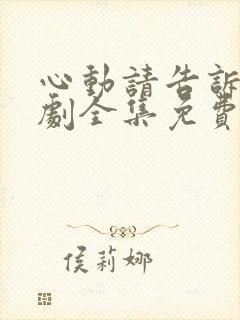 心動請告訴
劇全集免費
侯莉娜